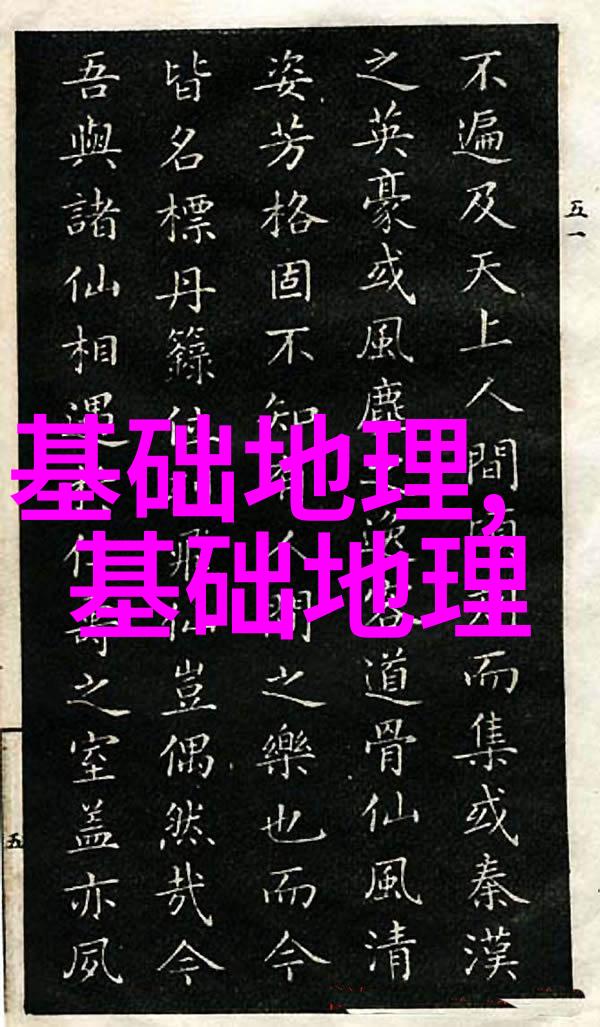 不遍及天上人間而集或秦漢
之英豪或風塵逸客道骨仙風清
姿芳格固不知有人間之樂也而今
皆名標丹籙位飛仙豈偶然哉今
吾與諸仙相遇仁壽之室盖亦夙
五一
五
基础地理,
基础地理